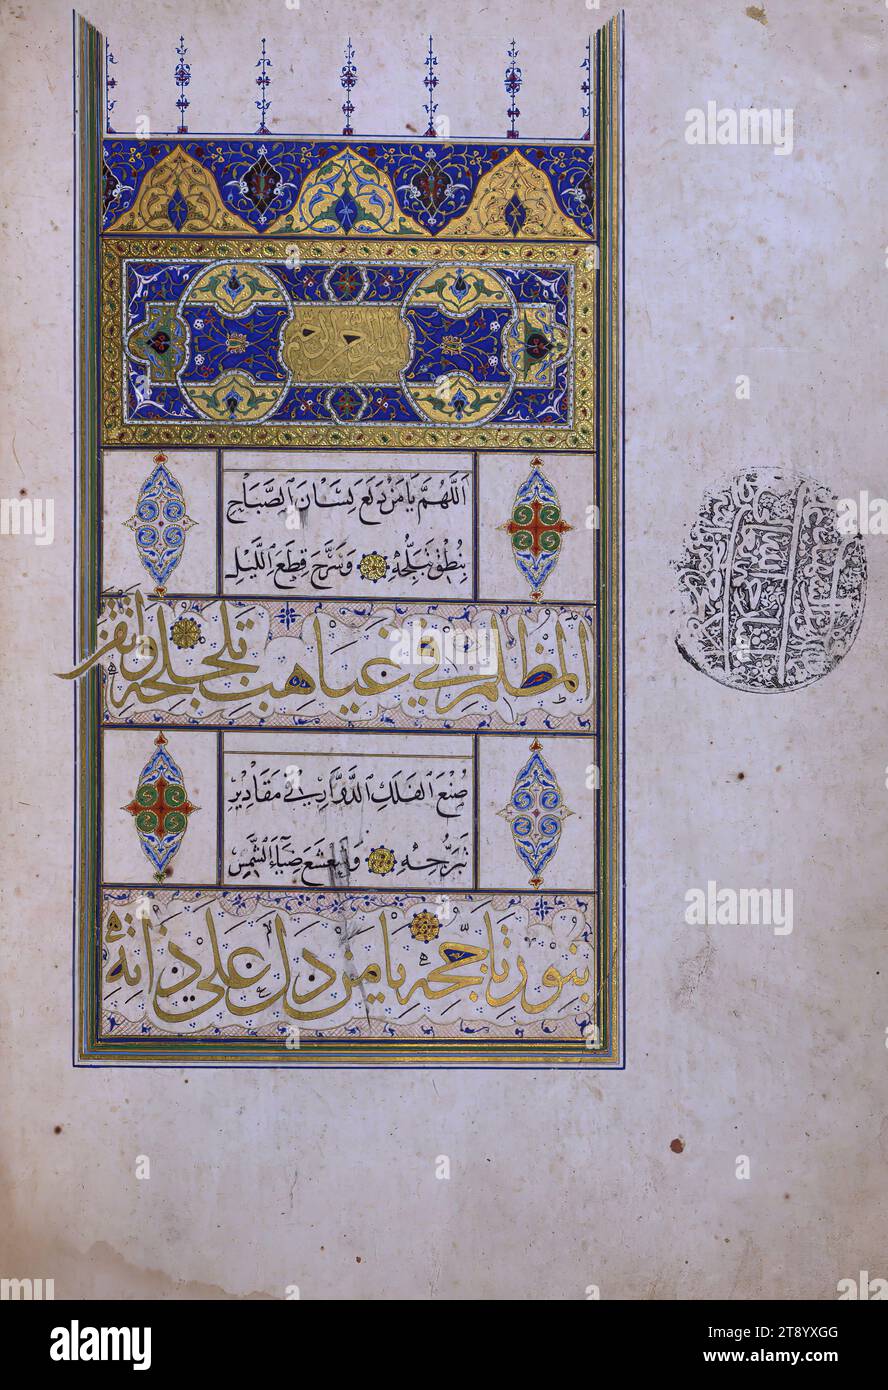 بسم الله الرحمن الرحيم
اَللّٰهُمَّ يَا مَنْ دَلَعَ لِسَانَ الصَّبَاحِ
بِنُطْقِ تَبَلُّجِهِ وَسَرَّحَ قِطَعَ اللَّيْلِ
المظلم في غياهب تلجلجه واتقن
صُنْعَ الْفَلَكِ الدَّوَّارِ فِي مَقَادِيرِ
تَبَرُّجِهِ وَشَعْشَعَ ضِيَاءَ الشَّمْسِ
بنور تاججه يا من دل على ذاته
alamy
Image ID: 2T8YXGG
www.alamy.com